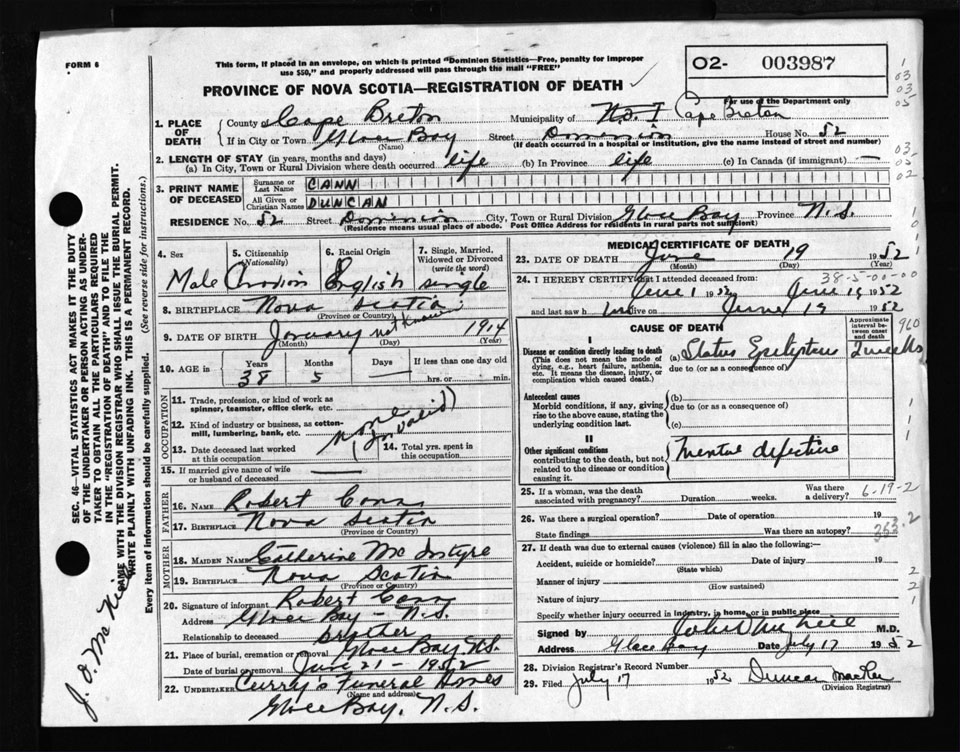 FORM 6
This form, if placed in an envelope, on which is printed "Dominion Statistics—Free, penalty for improper
use $50," and properly addressed will pass through the mail "FREE"
02- 003987
For use of the Department only
PROVINCE OF NOVA SCOTIA—REGISTRATION OF DEATH
1. PLACE OF DEATH County of Cape Breton Municipality of Cape Breton
If in City or Town Glace Bay (Name) Street Dominion House No. 52
(If death occurred in a hospital or institution, give the name instead of street and number)
2. LENGTH OF STAY (in years, months and days)
(a) In City, Town or Rural Division where death occurred life (b) In Province life (c) In Canada (if immigrant) —
3. PRINT NAME OF DECEASED Surname or Last Name CANN
All Given or Christian Names DUNCAN
RESIDENCE No. 52 Street Dominion City, Town or Rural Division Glace Bay Province N.S.
(Residence means usual place of abode. Post Office Address for residents in rural parts not sufficient)
4. Sex Male
5. Citizenship (Nationality)
6. Racial Origin English
7. Single, Married, Widowed or Divorced (write the word) single
8. BIRTHPLACE Nova Scotia
(Province or Country)
9. DATE OF BIRTH January not known 1914
(Month) (Day) (Year)
10. AGE in Years 38 Months 5 Days If less than one day old hrs. or min.
OCCUPATION
11. Trade, profession, or kind of work as spinner, teamster, office clerk, etc.
12. Kind of industry or business, as cotton-mill, lumbering, bank, etc. none (Invalid)
13. Date deceased last worked at this occupation
14. Total yrs. spent in this occupation
15. If married give name of wife or husband of deceased —
FATHER
16. NAME Robert Cann
17. BIRTHPLACE Nova Scotia
(Province or Country)
MOTHER
18. MAIDEN NAME Catherine McIntyre
19. BIRTHPLACE Nova Scotia
(Province or Country)
20. Signature of informant Robert Cann
Address Glace Bay - N.S.
Relationship to deceased brother
21. Place of burial, cremation or removal Glace Bay N.S.
Date of burial or removal June 21 - 1952
22. UNDERTAKER Curry's Funeral Homes
(Name and address)
Glace Bay, N.S.
MEDICAL CERTIFICATE OF DEATH
23. DATE OF DEATH June 19 1952
(Month) (Day) (Year)
38-5-00-00
24. I HEREBY CERTIFY that I attended deceased from:
June 1 1952 June 19 1952
and last saw h im alive on June 19 1952
CAUSE OF DEATH
Approximate interval between onset and death
960
I
Disease or condition directly leading to death (a) Status Epilepticus 2 weeks
(This does not mean the mode of dying, e.g., heart failure, asthenia, etc. It means the disease, injury, or complication which caused death.)
due to (or as a consequence of)
Antecedent causes (b)
Morbid conditions, if any, giving rise to the above cause, stating the underlying condition last.
due to (or as a consequence of)
(c)
II
Other significant conditions Mental defective
contributing to the death, but not related to the disease or condition causing it.
25. If a woman, was the death associated with pregnancy? Duration weeks. Was there a delivery? 6-19-2
26. Was there a surgical operation? Date of operation 19
State findings Was there an autopsy? 353.2
27. If death was due to external causes (violence) fill in also the following:—
Accident, suicide or homicide? Date of injury 19
(State which)
Manner of injury
(How sustained)
Nature of injury
Specify whether injury occurred in industry, in home, or in public place
Signed by M.D.
Address Glace Bay Date July 17 1952
28. Division Registrar's Record Number
29. Filed July 17 1952 Duncan
(Division Registrar)
SEC. 46—VITAL STATISTICS ACT MAKES IT THE DUTY
OF THE UNDERTAKER OR PERSON ACTING AS UNDERTAKER
TO OBTAIN ALL THE PARTICULARS REQUIRED
IN THE "REGISTRATION OF DEATH" AND TO FILE THE
SAME WITH THE DIVISION REGISTRAR WHO SHALL ISSUE THE BURIAL PERMIT.
WRITE PLAINLY WITH UNFADING INK. THIS IS A PERMANENT RECORD.
Every item of information should be carefully supplied. (See reverse side for instructions.)